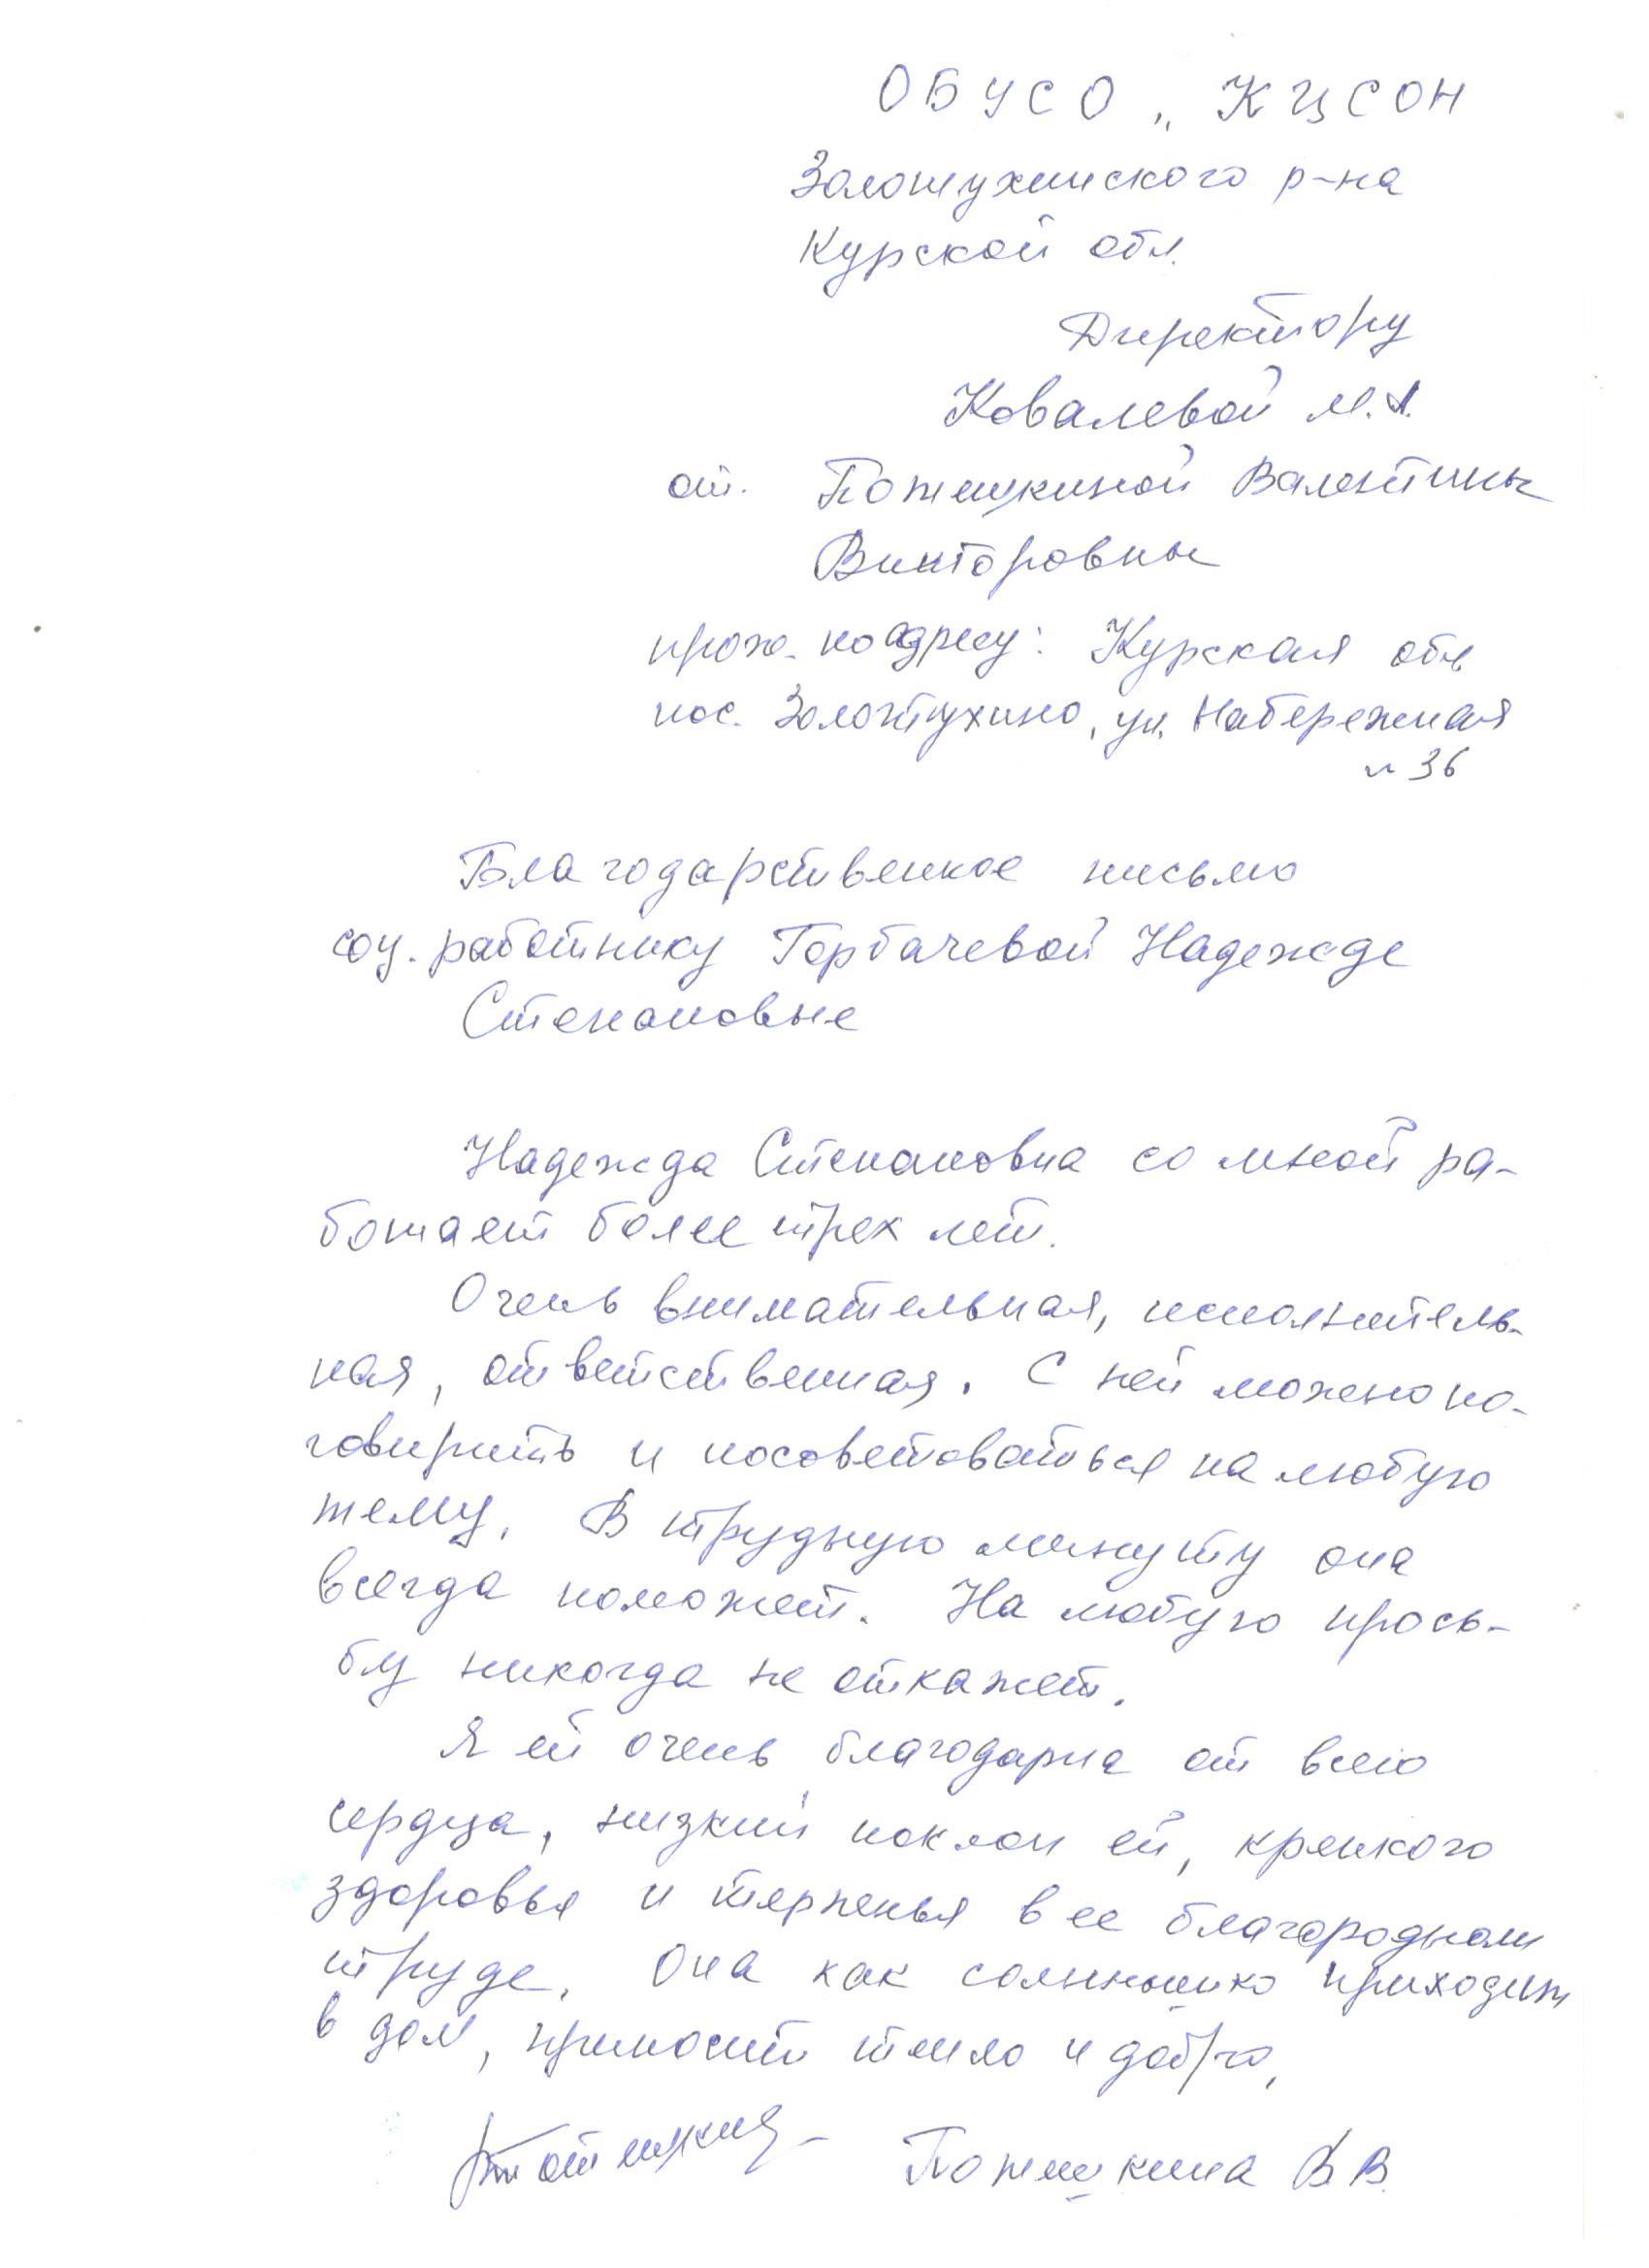 ОБУСО „КЦСОН
Золотухинского р-на
Курской обл.
Директору
Ковалевой М.А.
от. Викторовны Валентины
Викторовны
прож. по адресу: Курская обл
пос. Золотухино, ул. Набережная
36
Благодарственное письмо
соц. работнику Горбачевой Надежде
Степановне
Надежда Степановна со мной ра-
ботает более трех лет.
Очень внимательная, исполнитель-
ная, ответственная. С ней можно по-
говорить и посоветоваться на любую
тему. В трудную минуту она
всегда поможет. На любую прось-
бу никогда не откажет.
Я ей очень благодарна от всего
сердца, низкий поклон ей, крепкого
здоровья и терпенья в ее благородном
труде. Она как солнышко приходит
в дом, приносит тепло и добро,
В.В.